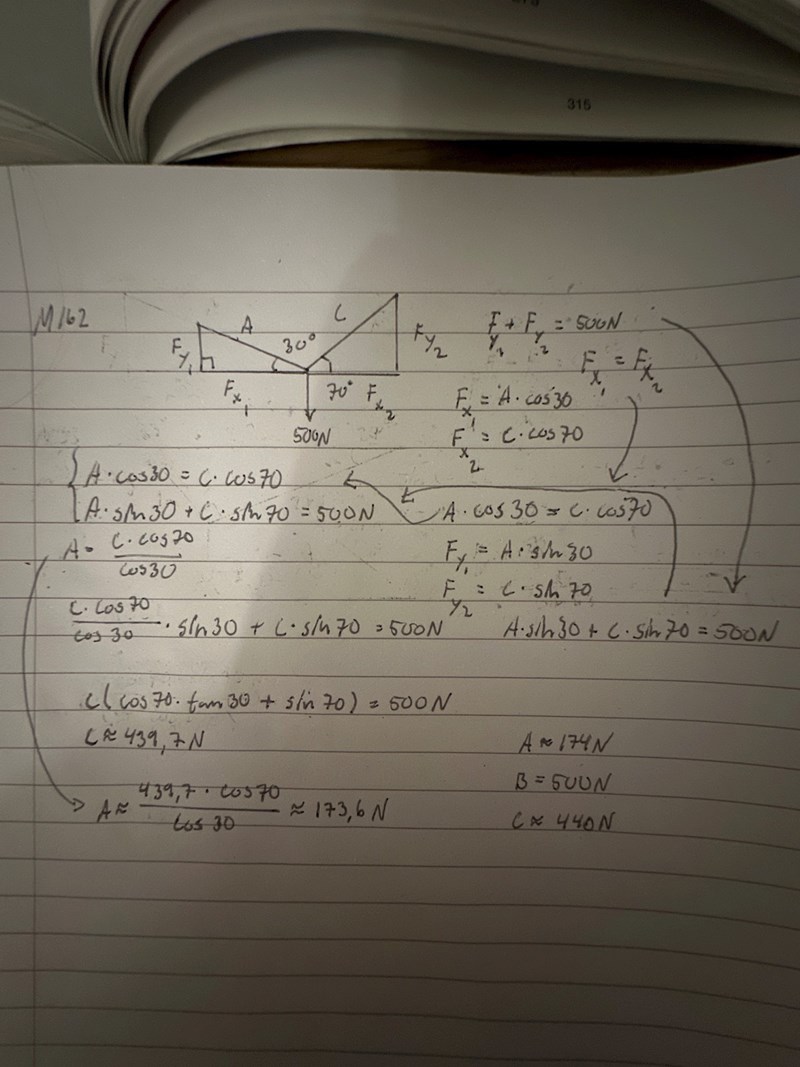 315
M162
A
C
30°
F_y₁
F_y₂
F_x₁
70°
F_x₂
500N
F_y₁ + F_y₂ = 500N
F_x₁ = F_x₂
F_x₁ = A · cos30
F_x₂ = C · cos70
A · cos30 = C · cos70
F_y₁ = A · sin30
F_y₂ = C · sin70
A · sin30 + C · sin70 = 500N
{ A · cos30 = C · cos70
A · sin30 + C · sin70 = 500N
A = (C · cos70)/(cos30)
(C · cos70)/(cos30) · sin30 + C · sin70 = 500N
C(cos70 · tan30 + sin70) = 500N
C ≈ 439,7N
A ≈ (439,7 · cos70)/(cos30) ≈ 173,6N
A ≈ 174N
B = 500N
C ≈ 440N